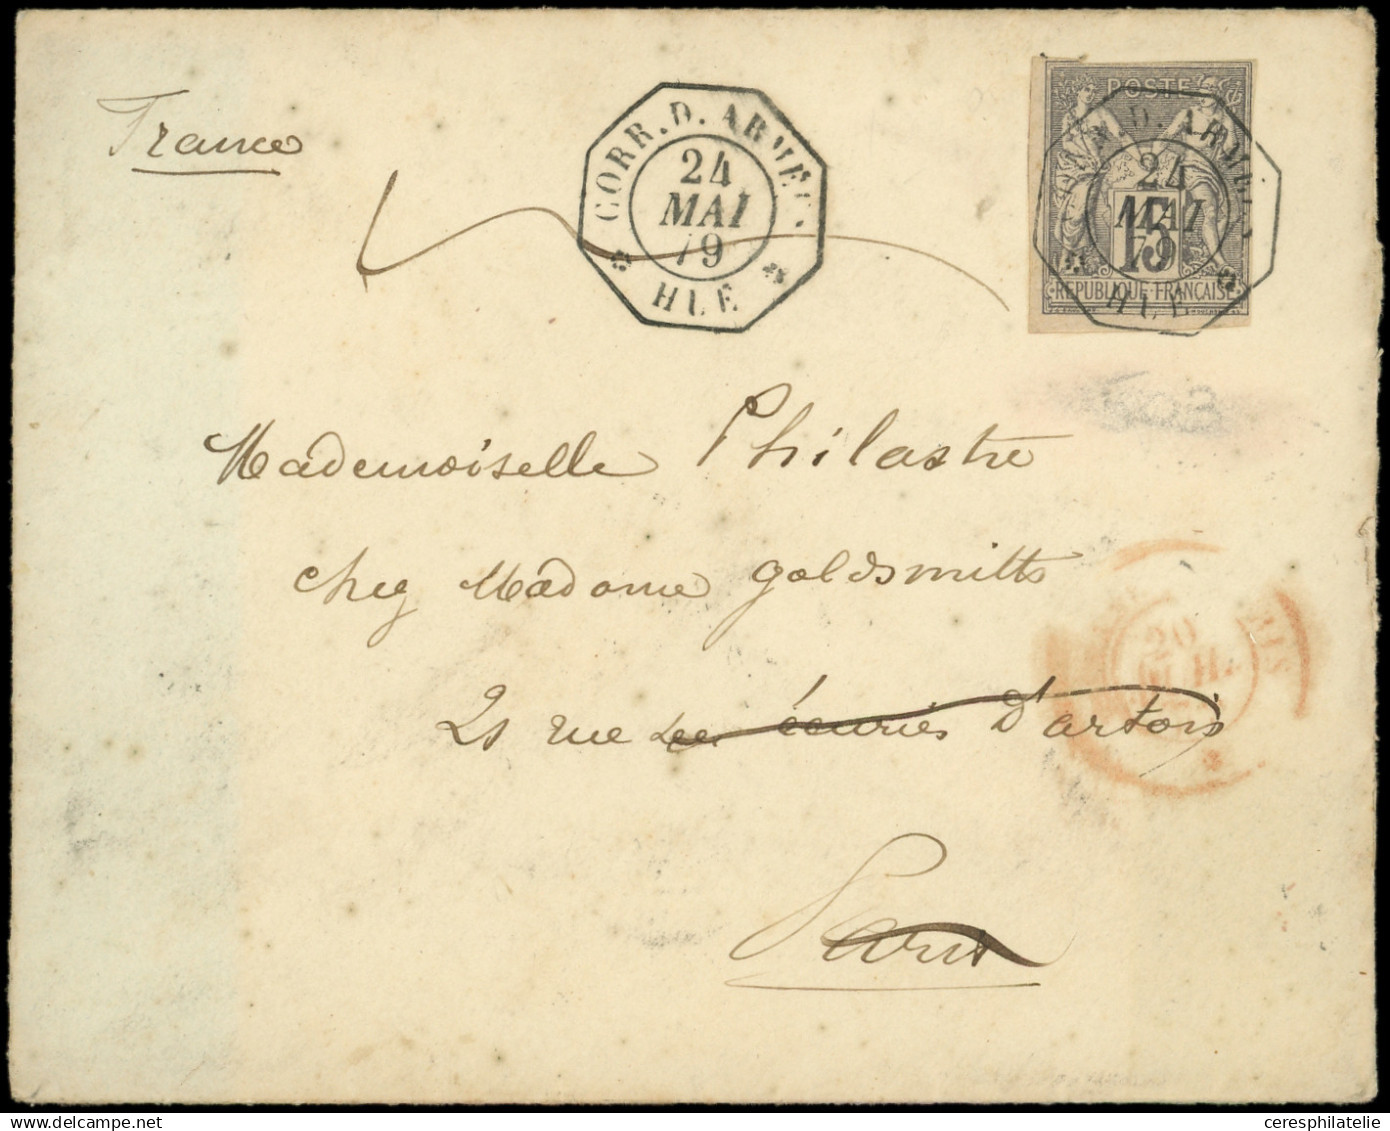 France
CORR. D. ARMÉES
24
MAI
79
HUE
POSTE
CORR. D. ARMÉES
24
MAI
79
15
REPUBLIQUE FRANÇAISE
HUE
Mademoiselle Philastre
chez Madame Goldsmitts
21 rue des écuries d'artois
20
JUIL.
Paris
ceresphilatelie